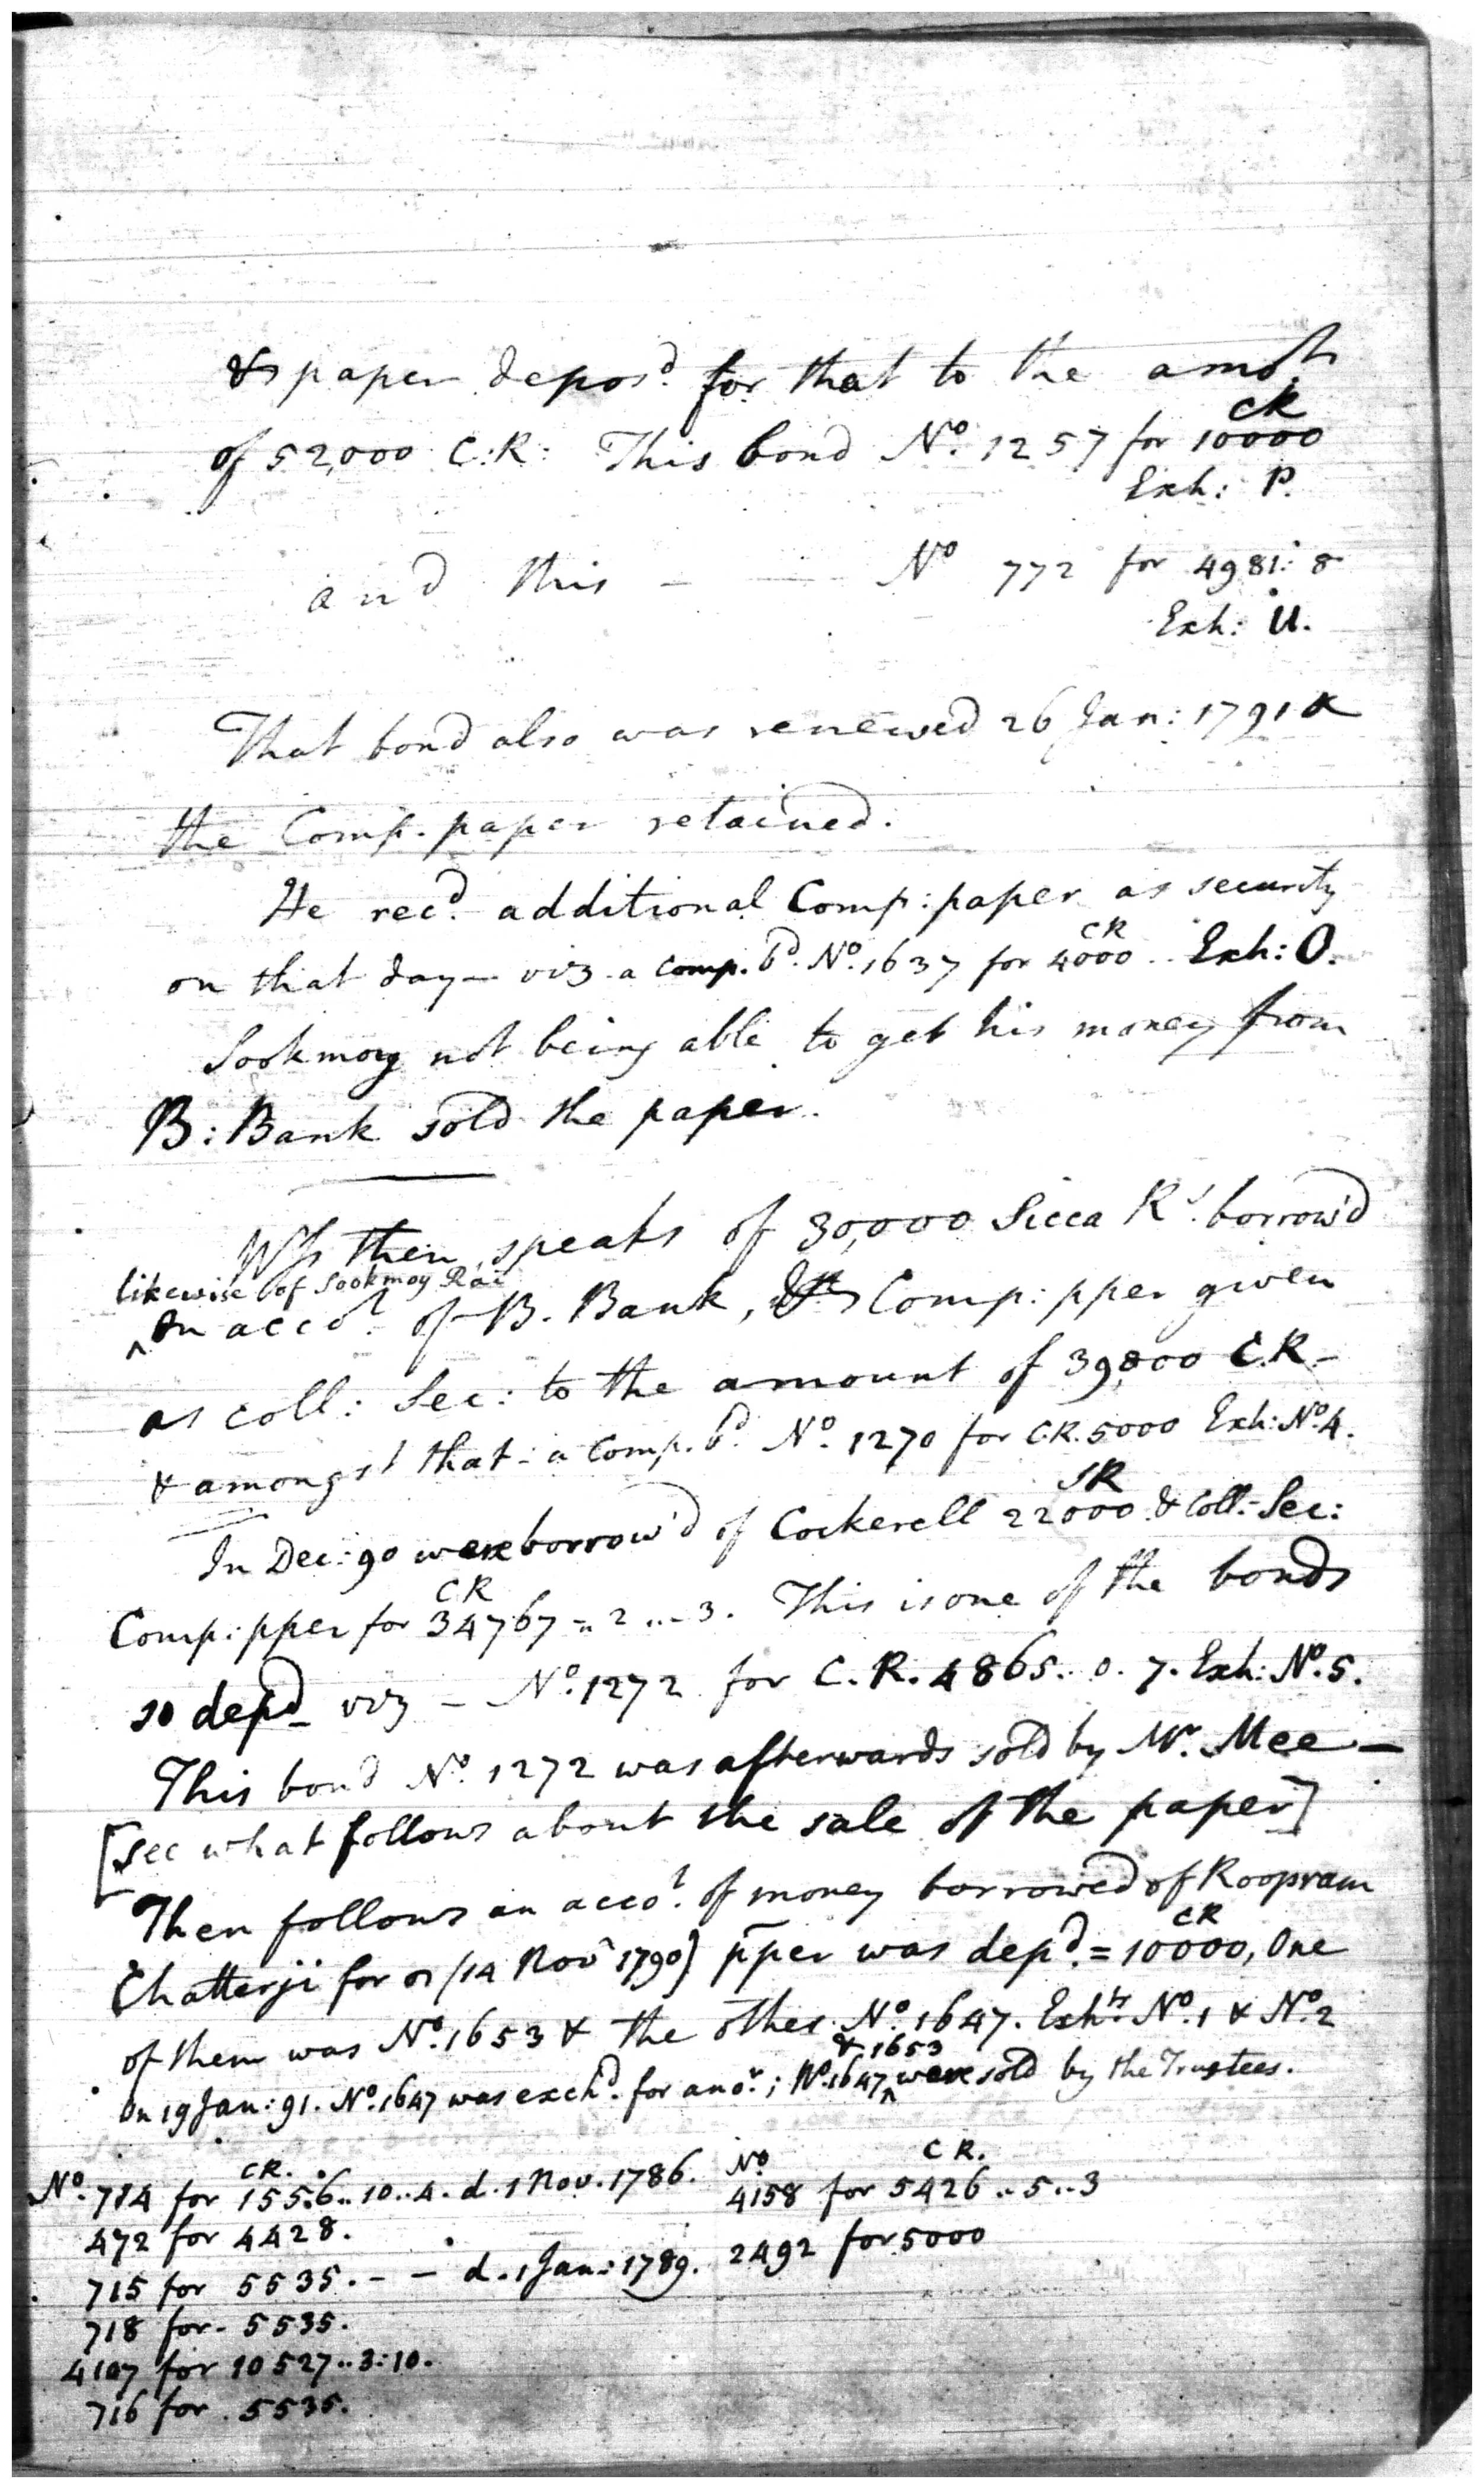 & paper depos^d. for that to the amo^t.
of 52,000 C:R: This bond N^o. 1257 for 10000 ^CR
Exh: P.
and this — — N^o 772 for 4981: 8
Exh: U.
That bond also was renewed 26 Jan: 1791 &
the Comp. paper retained.
He rec^d. additional Comp: paper as security
on that day — viz a comp. b^d. N^o. 1637 for 4000 ^CR .. Exh: O.
Sookmoy not being able to get his money from
B: Bank sold the paper.
Ws then speaks of 30,000 Sicca R^s. borrow'd
likewise of Sookmoy Rai
^ On acco^t. of B. Bank, & Comp: pper given
as coll: Sec: to the amount of 39,000 C.R. —
& amongst that - a Comp. b^d. N^o. 1270 for C.R. 5000 Exh: N^o. 4.
In Dec: 90 were borrow'd of Cockerell 22000 ^SR & Coll: Sec:
Comp: pper for 34767 ^CR .. 2 .. 3. This is one of the bonds
so dep^d — viz — N^o. 1272 for C.R. 4865.. 0. 7. Exh: N^o. 5.
This bond N^o. 1272 was afterwards sold by M^r. Mee —
[see what follows about the sale of the paper]
Then follows an acco^t. of money borrowed of Roopram
Chatterji for (14 Nov^r 1790) pper was dep^d. = 10000 ^CR, One
of them was N^o. 1653 & the other N^o. 1647. Exh^ts N^o. 1 & N^o. 2
& 1653
On 19 Jan: 91. N^o. 1647 was exch^d. for ano^r.; N^o. 1647 ^ were sold by the Trustees.
N^o. 714 for 1556 ^CR. .. 10.. 4. d. 1 Nov. 1786. N^o 4158 for 5426 ^CR. .. 5.. 3
472 for 4428.
715 for 5535. — — d. 1 Jan: 1789. 2492 for 5000
718 for 5535.
4107 for 10527.. 3: 10.
716 for 5535.